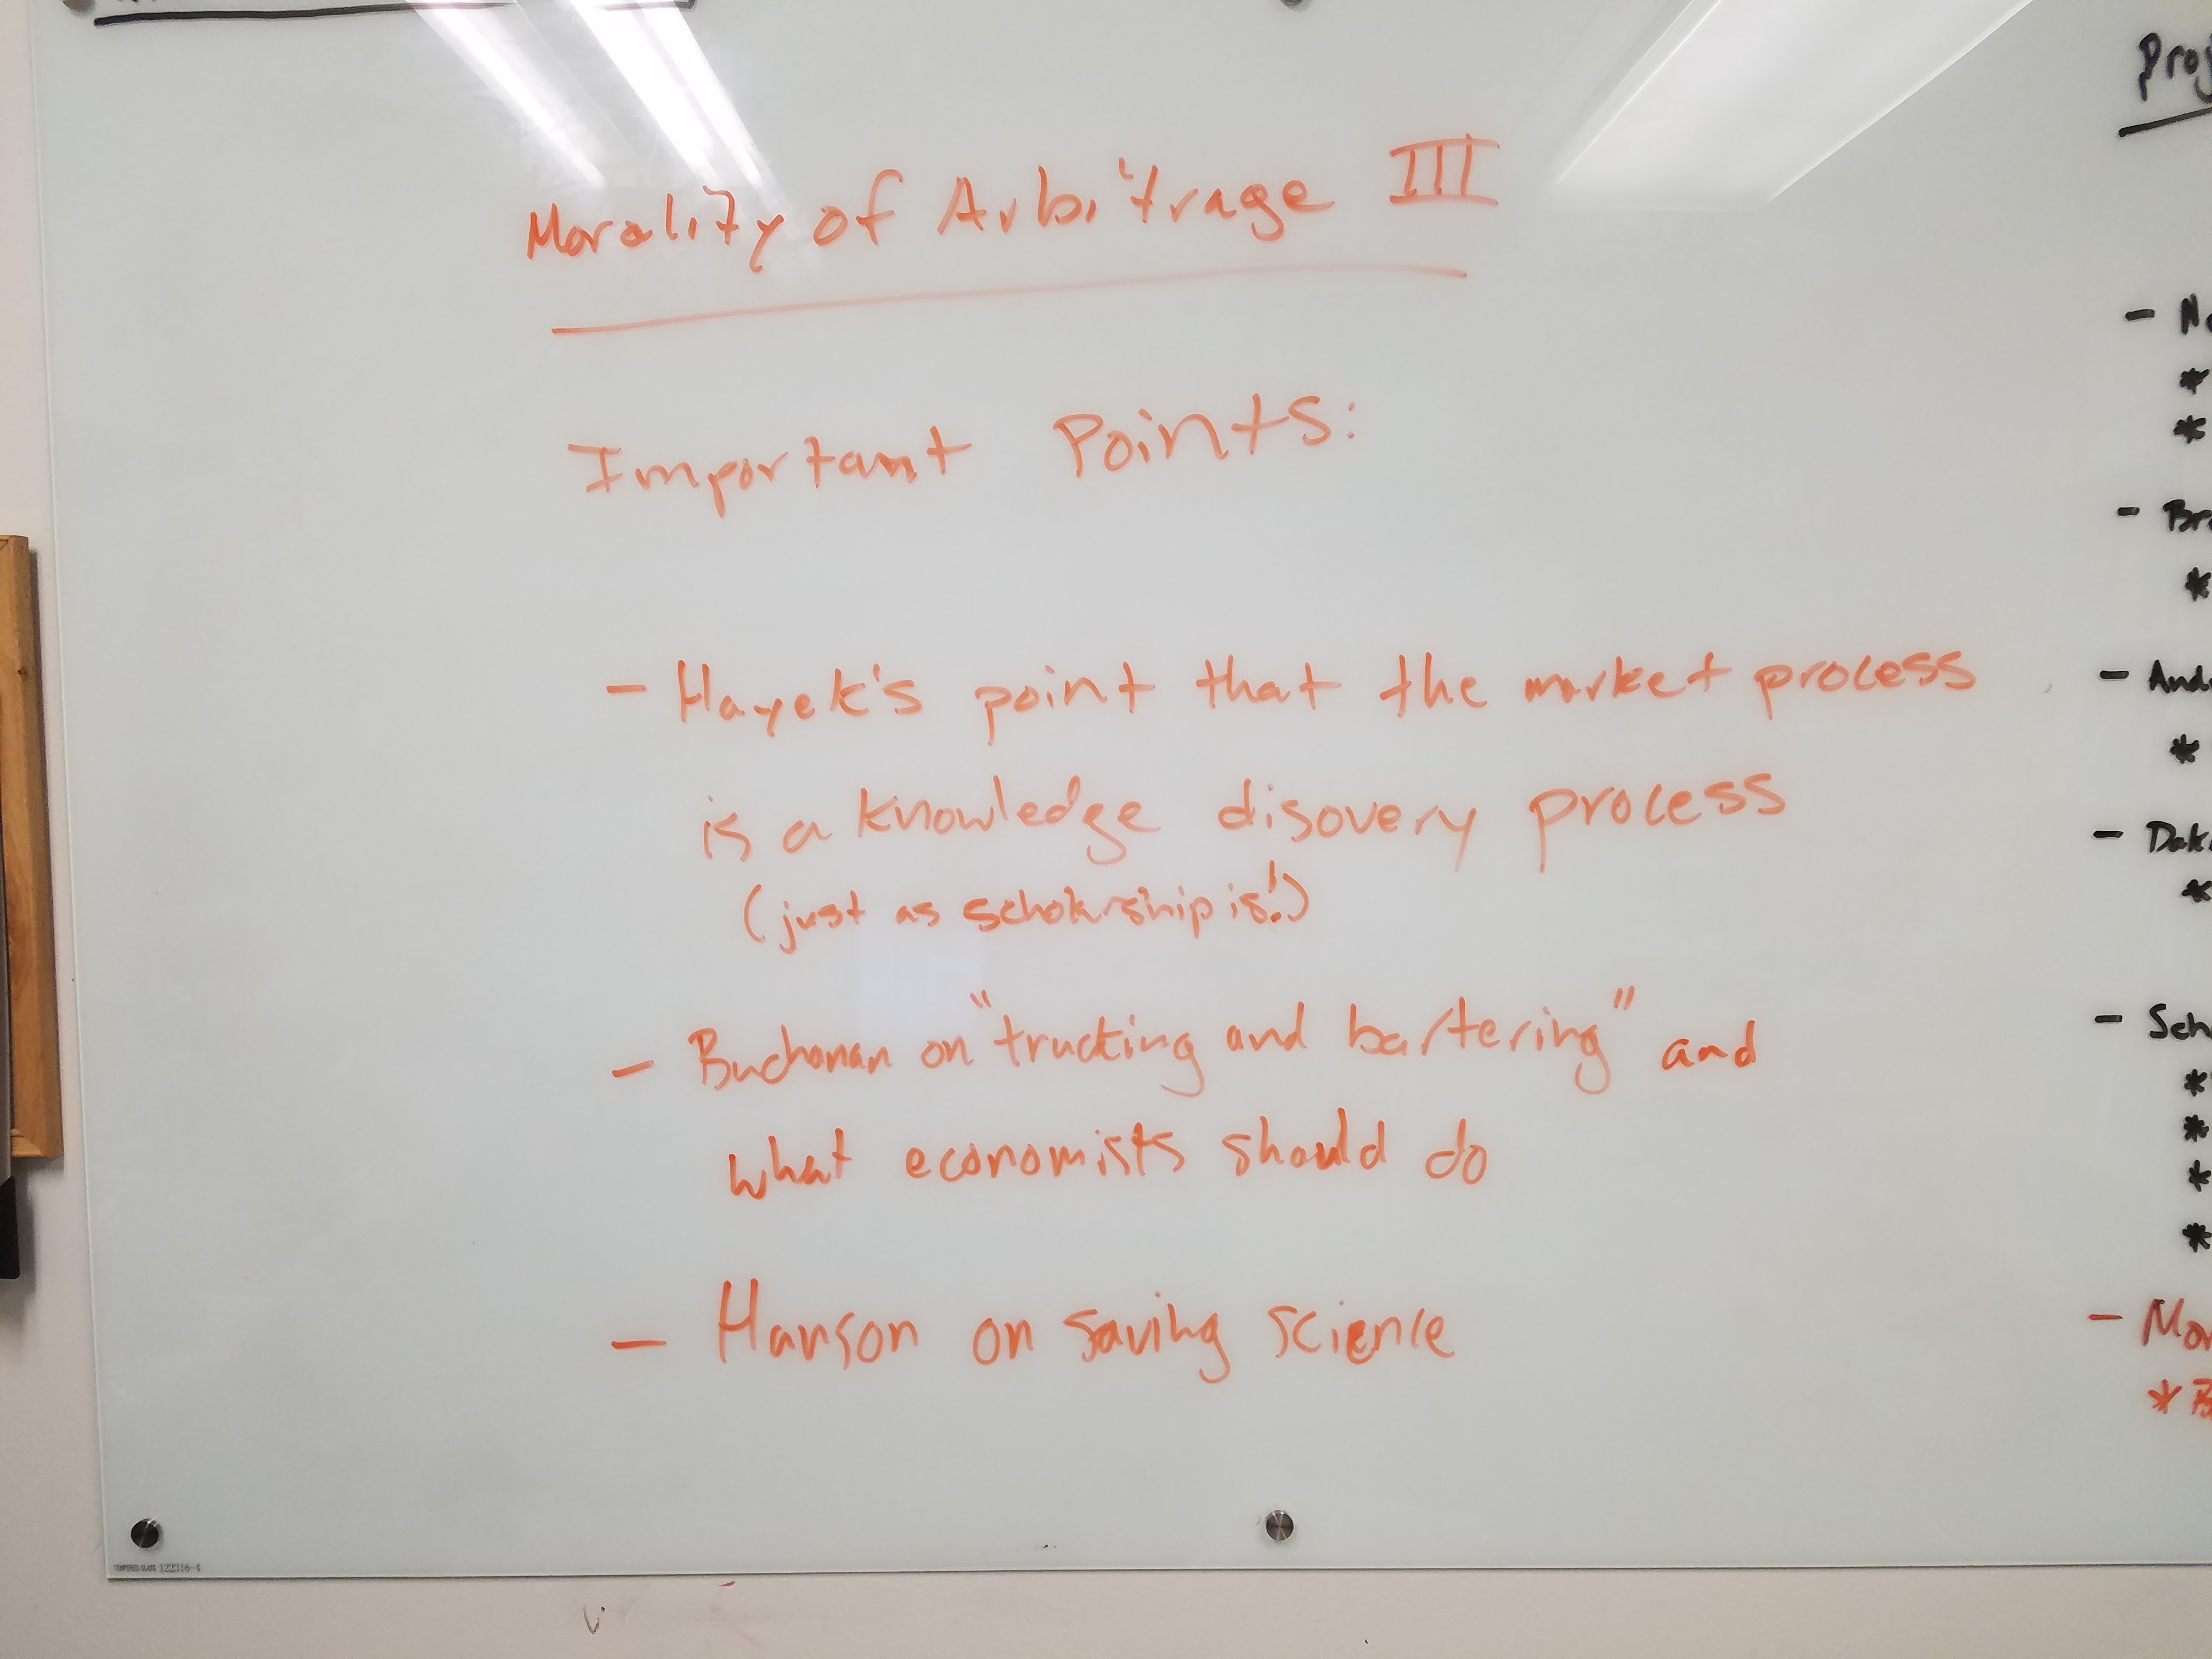 Morality of Arbitrage III
Important Points:
- Hayek's point that the market process
is a knowledge disovery process
(just as scholarship is!)
- Buchanan on "trucking and bartering" and
what economists should do
- Hanson on saving science
TEMPERED GLASS 122316-4
Proj
-
*
*
- Br
*
- And
*
- Dak
*
- Sch
*
*
*
*
- Mor
*